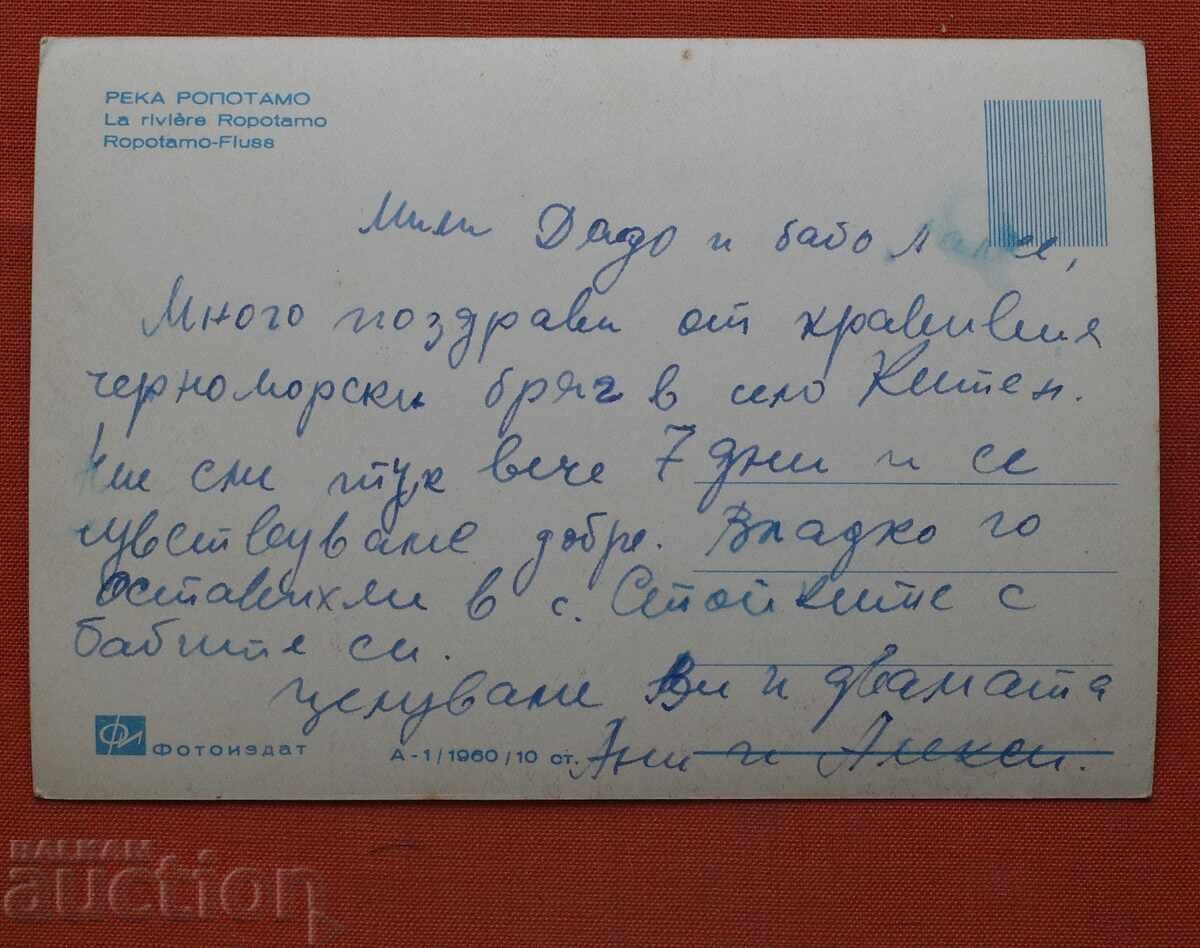 РЕКА РОПОТАМО
La rivière Ropotamo
Ropotamo-Fluss
Мили Дядо и бабо
Много поздрави от кравивия
черноморски бряг в село Китен.
Ние сми тук вече 7 дни и се
чувствуваме добре. Владко го
оставихми в с. Стоките с
бабите си.
целуваме Ви и двамата
Ани и Алекси.
Фотоиздат
А-1/1960/10 ст.
BALKAN
auction